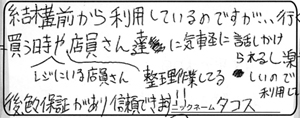 結構前から利用しているのですが、、行く
買う時や店員さん達に気軽に話しかけ
られるし楽
しいので
利用して
レジにいる店員さん
整理作業してる
後飲保証があり信頼でき封
ニックネーム タコス